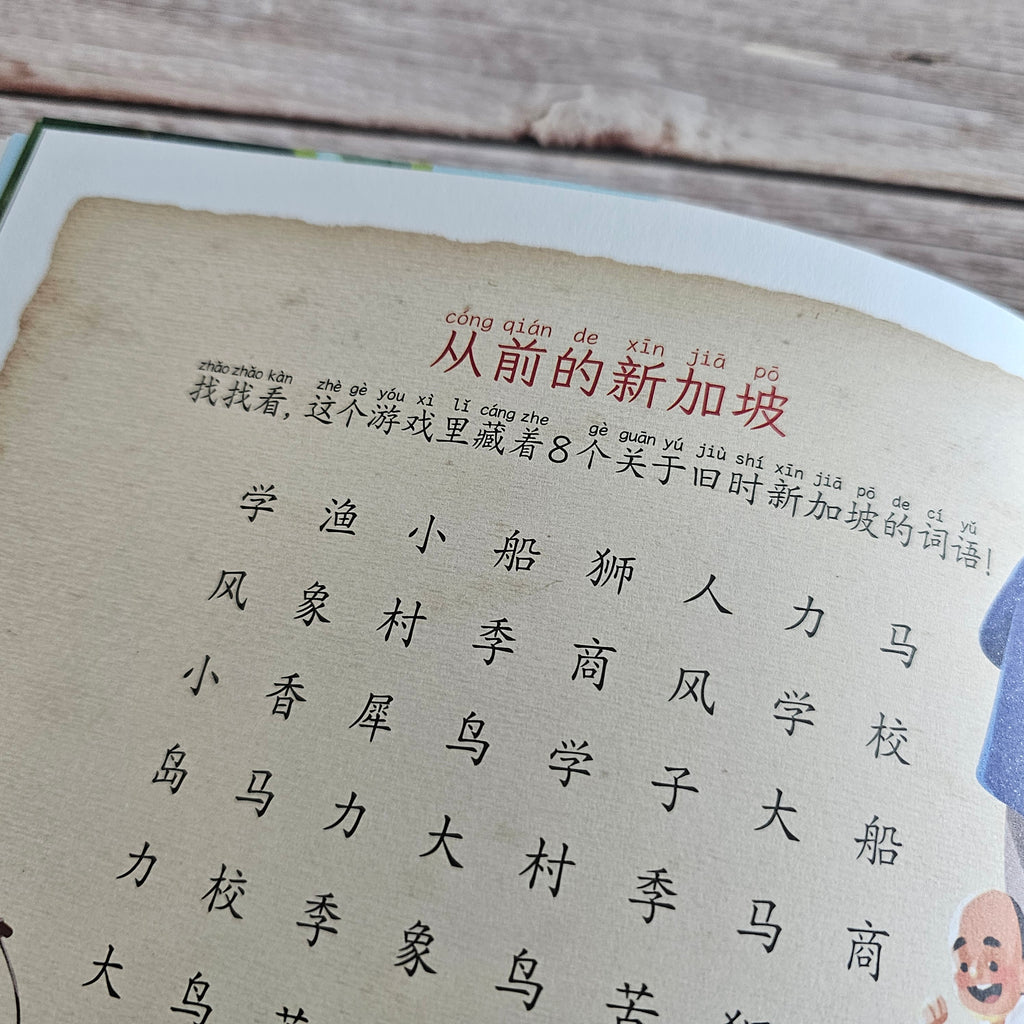 cóng qián de xīn jiā pō
从前的新加坡
zhǎo zhǎo kàn zhè gè yóu xì lǐ cáng zhe gè guān yú jiù shí xīn jiā pō de cí yǔ
找找看，这个游戏里藏着8个关于旧时新加坡的词语！
学 渔 小 船 狮 人 力 马
风 象 村 季 商 风 学 校
小 香 犀 鸟 学 子 大 船
岛 马 力 大 村 季 马 商
力 校 季 象 鸟 苦
大 鸟